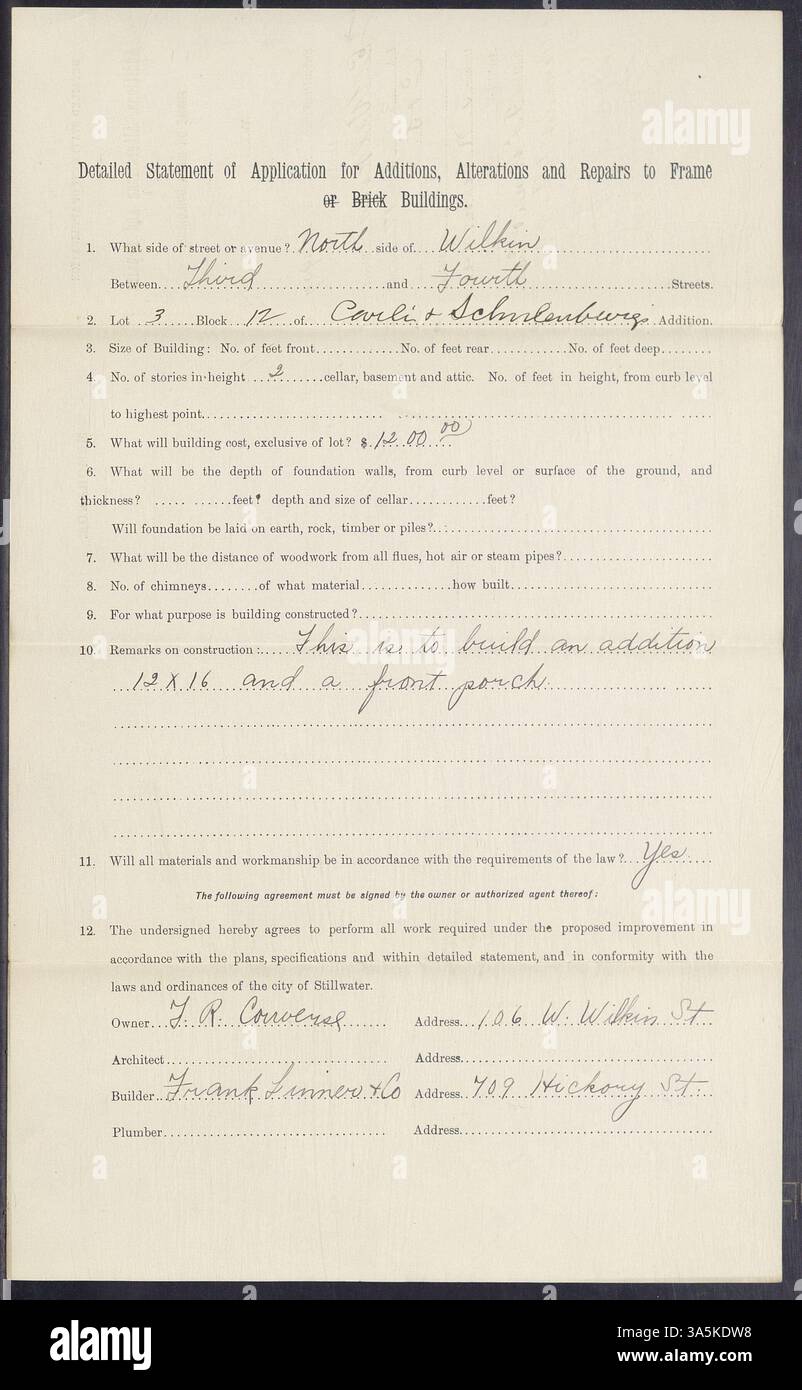 Detailed Statement of Application for Additions, Alterations and Repairs to Frame
or Brick Buildings.
1. What side of street or avenue? North side of Wilkin
Between Third and Fourth Streets.
2. Lot 3 Block 12 of Carli & Schulenburgs Addition.
3. Size of Building: No. of feet front No. of feet rear No. of feet deep
4. No. of stories in height 2 cellar, basement and attic. No. of feet in height, from curb level
to highest point
5. What will building cost, exclusive of lot? $ 1200 00
6. What will be the depth of foundation walls, from curb level or surface of the ground, and
thickness? feet? depth and size of cellar feet?
Will foundation be laid on earth, rock, timber or piles?
7. What will be the distance of woodwork from all flues, hot air or steam pipes?
8. No. of chimneys of what material how built
9. For what purpose is building constructed?
10. Remarks on construction: This is to build an addition
12 X 16 and a front porch
11. Will all materials and workmanship be in accordance with the requirements of the law? Yes
The following agreement must be signed by the owner or authorized agent thereof:
12. The undersigned hereby agrees to perform all work required under the proposed improvement in
accordance with the plans, specifications and within detailed statement, and in conformity with the
laws and ordinances of the city of Stillwater.
Owner F. R. Converse Address 106 W. Wilkin St
Architect Address
Builder Frank Linner & Co Address 709 Hickory St.
Plumber Address
alamy
Image ID: 3A5KDW8
www.alamy.com